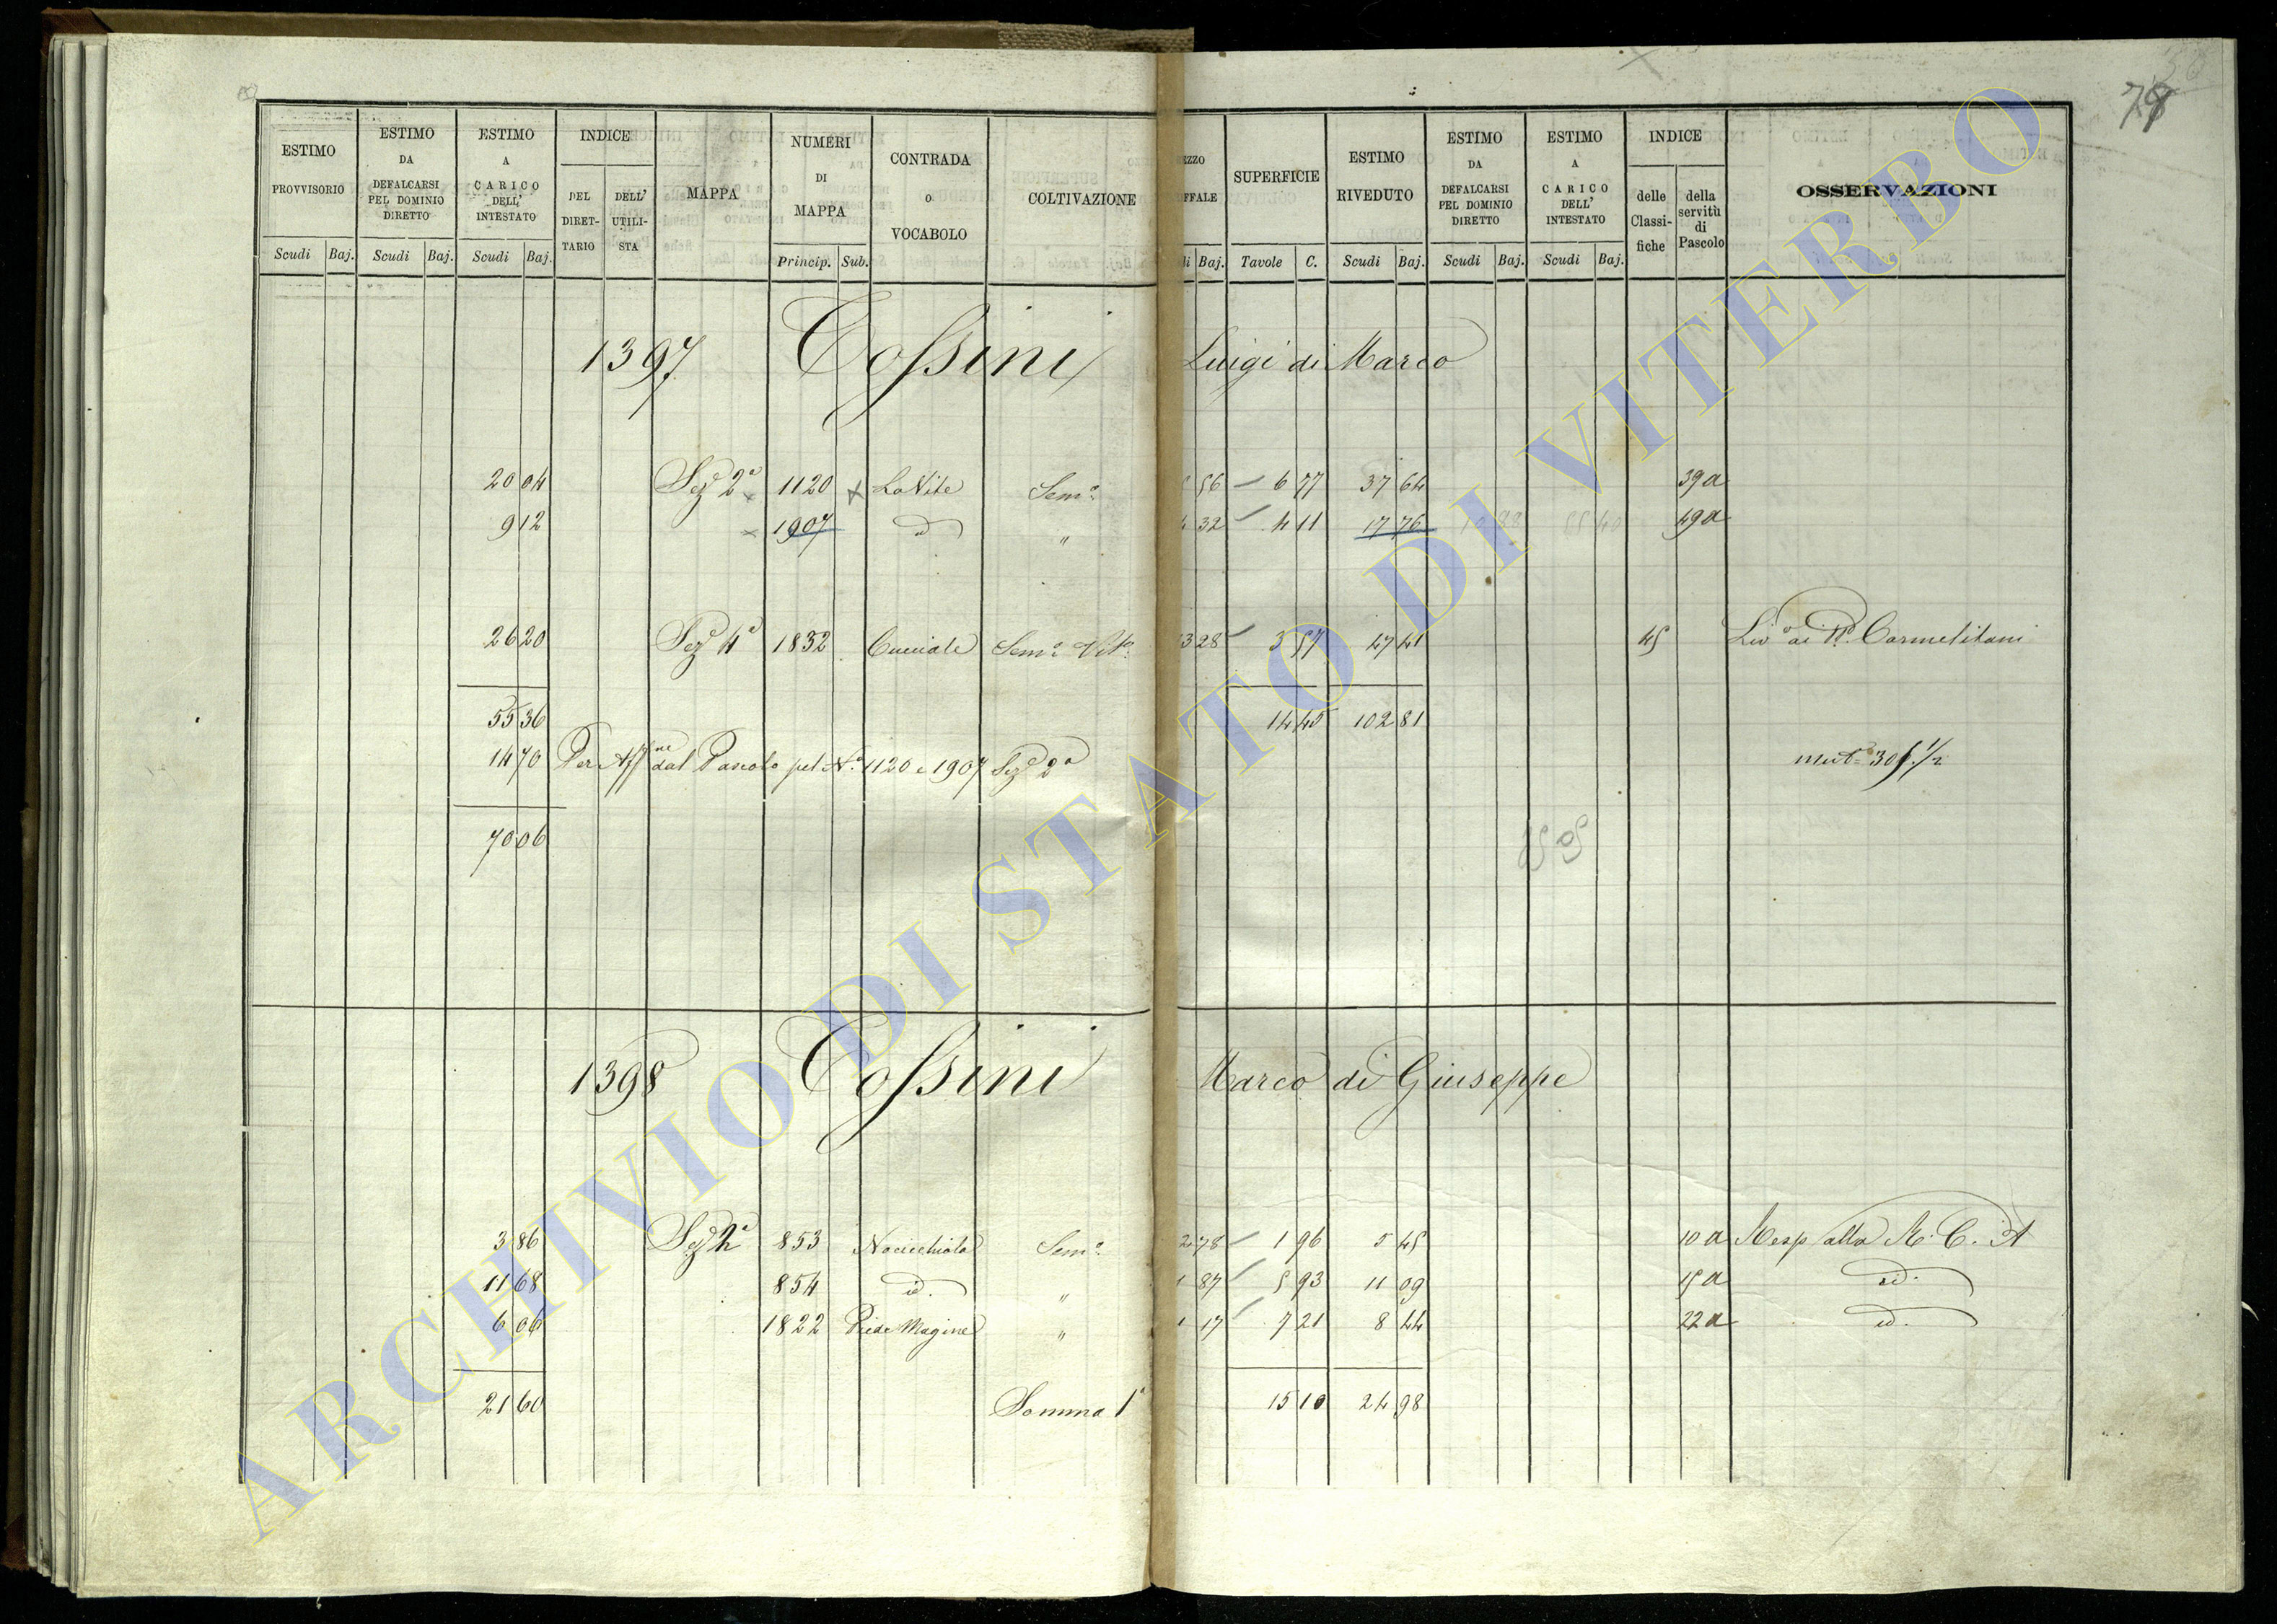 78
ESTIMO PROVVISORIO Scudi Baj.
ESTIMO DA DEFALCARSI PEL DOMINIO DIRETTO Scudi Baj.
ESTIMO A CARICO DELL' INTESTATO Scudi Baj.
INDICE DEL DIRETTARIO DELL' UTILISTA
MAPPA
NUMERI DI MAPPA Princip. Sub.
CONTRADA O VOCABOLO
COLTIVAZIONE
EZZO FFALE di Baj.
SUPERFICIE Tavole C.
ESTIMO RIVEDUTO Scudi Baj.
ESTIMO DA DEFALCARSI PEL DOMINIO DIRETTO Scudi Baj.
ESTIMO A CARICO DELL' INTESTATO Scudi Baj.
INDICE delle Classifiche della servitù di Pascolo
OSSERVAZIONI
1397 Cossini Luigi di Marco
20 04 Sez.e 2a 1120 La Vite Sem.o 56 6 77 37 64 39 a
9 12 1907 id " 4 32 4 11 17 76 49 a
26 20 Sez.e 4a 1832 Cucciale Sem.o Vit.o 3 28 3 57 47 41 45 Liv.o ai PP. Carmelitani
55 36 14 45 102 81
14 70 Per Aff.ne dal Pascolo pel N.o 1120 e 1907 Sez.e 2a
70 06
1398 Cossini Marco di Giuseppe
3 86 Sez.e 2a 853 Nocicchiola Sem.o 2 78 1 96 5 45 10 a Resp alla R. C. A
11 68 854 id. " 1 87 5 93 11 09 15 a id.
6 06 1822 Piede Magine " 1 17 7 21 8 44 22 a id.
21 60 Somma 1a 15 10 24 98
ARCHIVIO DI STATO DI VITERBO